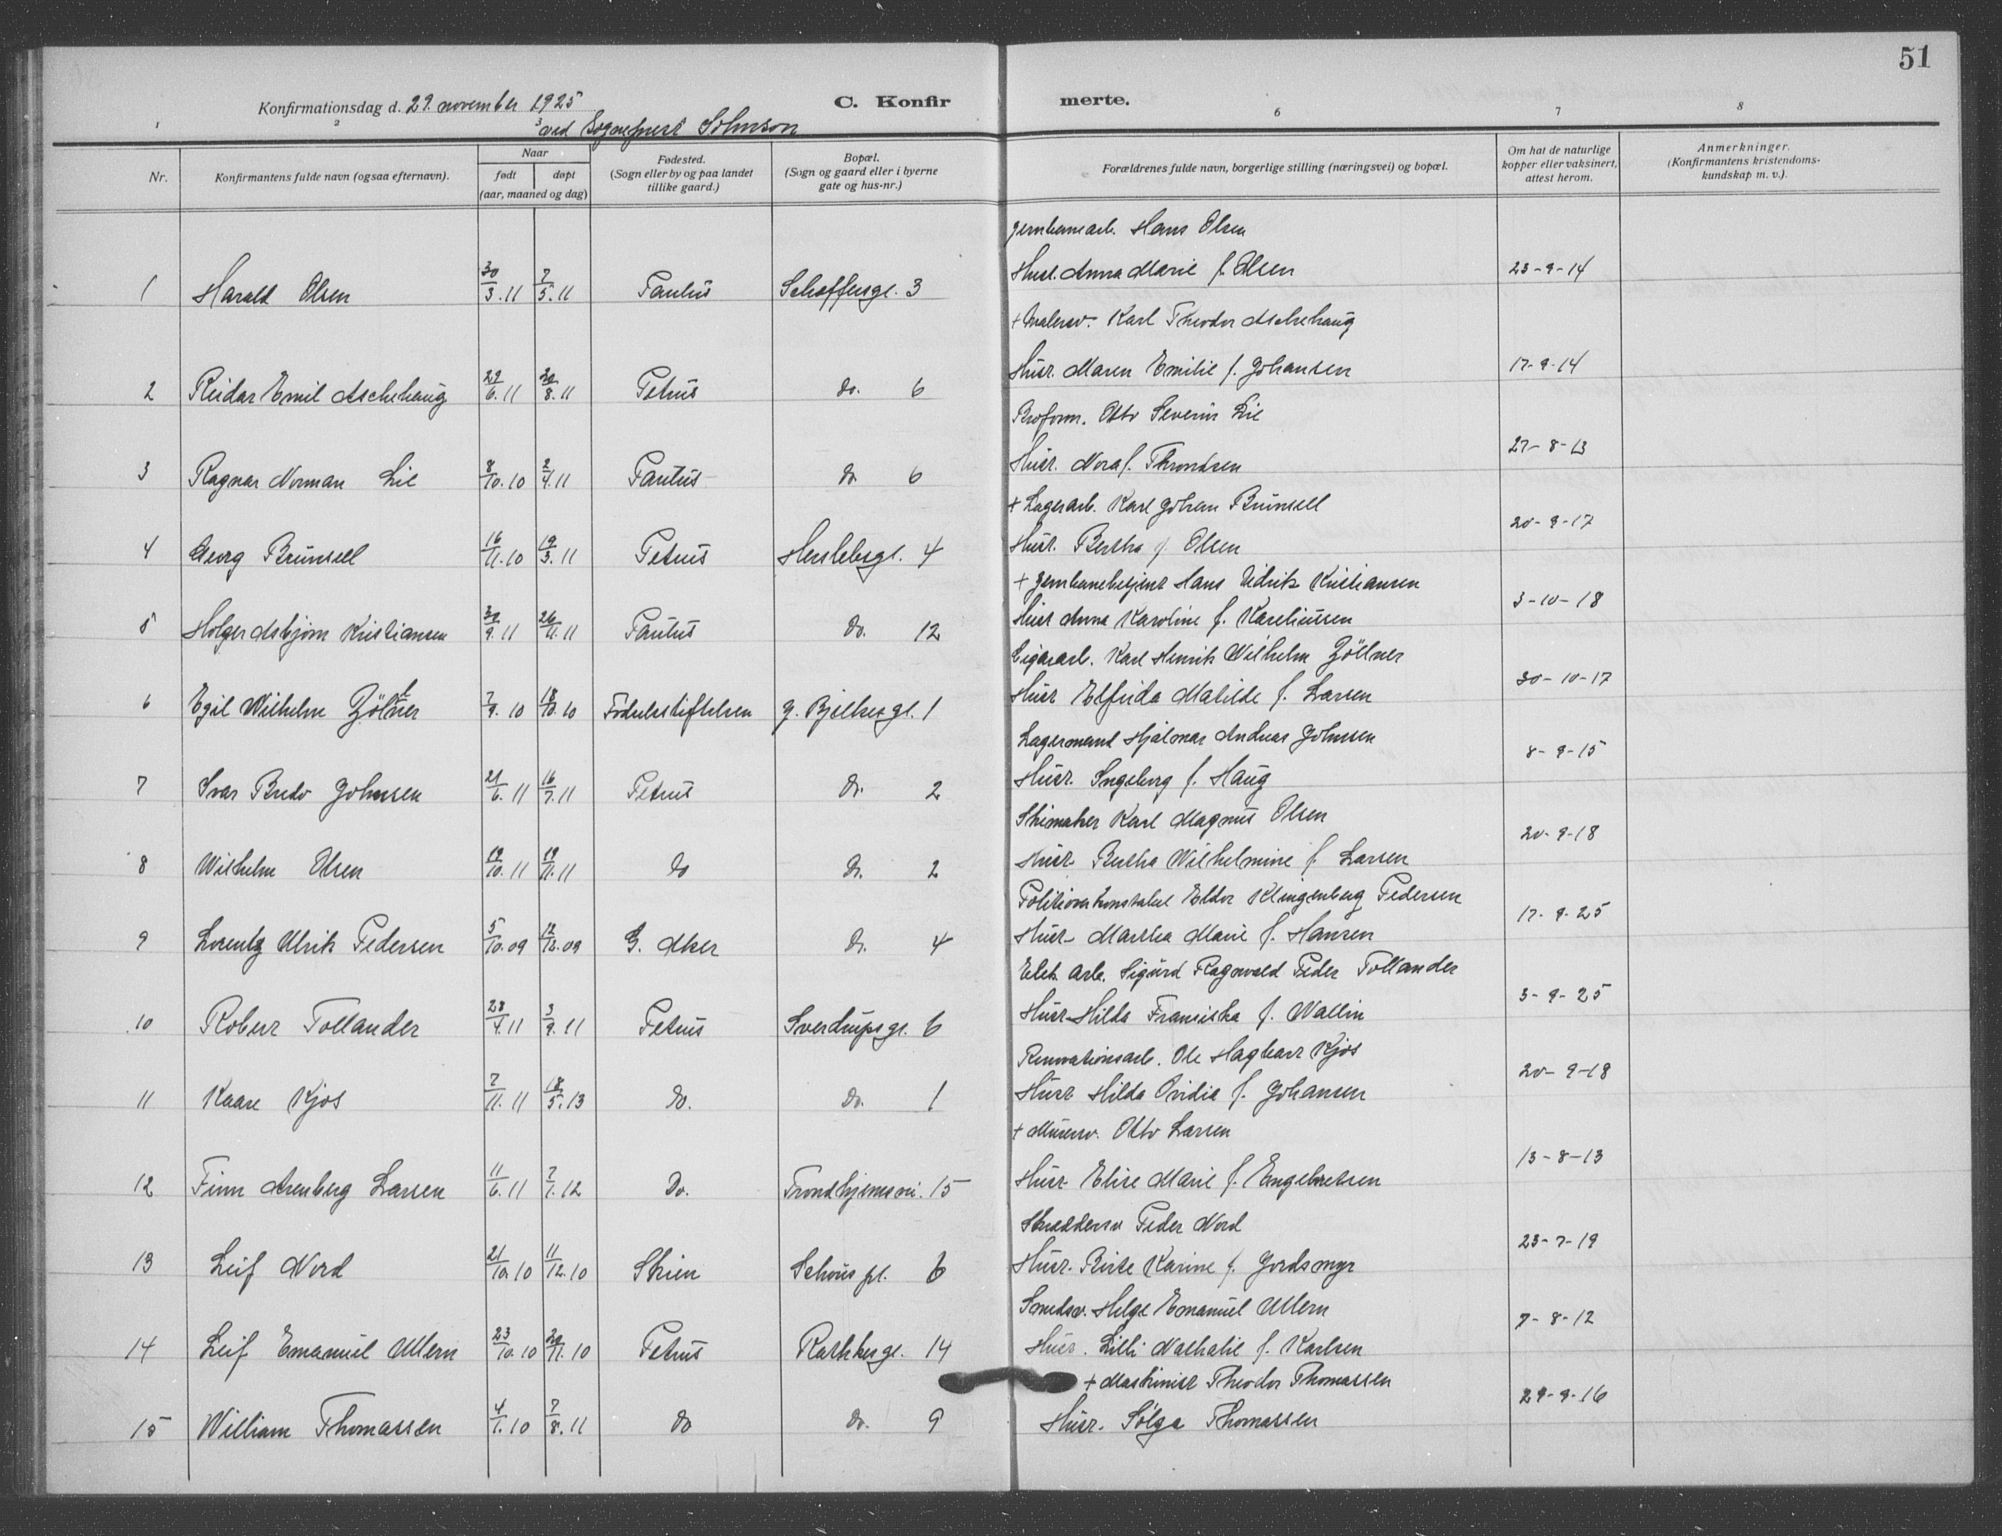 51
Konfirmationsdag d. 29. november 1925 C. Konfir merte.
ved Sogneprest Johnson
1 2 3 6 7 8
Nr. Konfirmantens fulde navn (ogsaa efternavn). Naar født døpt (aar, maaned og dag) Fødested. (Sogn eller by og paa landet tillike gaard.) Bopæl. (Sogn og gaard eller i byerne gate og hus-nr.) Forældrenes fulde navn, borgerlige stilling (næringsvei) og bopæl. Om hat de naturlige kopper eller vaksinert, attest herom. Anmerkninger. (Konfirmantens kristendomskundskap m. v.).
Jernbanearb. Hans Olsen
1 Harald Olsen 30/3. 11 7/5. 11 Paulus Schøffersgt. 3 Hust. Anna Marie f. Olsen 23-9-14
+ Malersv. Karl Theodor Aschehaug
2 Reidar Emil Aschehaug 29/6. 11 20/8. 11 Petrus do. 6 Hust. Maren Emilie f. Johansen 17-9-14
Brøform. Otto Severin Lie
3 Ragnar Norman Lie 8/10. 10 2/4. 11 Paulus do 6 Hust. Nora f. Throndsen 27-8-13
+ Lagerarb. Karl Johan Brunsell
4 Georg Brunsell 16/11. 10 19/3. 11 Petrus Herslebsgt. 4 Hust. Bertha f Olsen 20-9-17
+ Jernbanebetjent Hans Didrik Kristiansen
5 Holger Asbjørn Kristiansen 30/9. 11 26/11. 11 Paulus do. 12 Hust Anna Karoline f. Kareliussen 3-10-18
Cigararb. Karl Henrik Wilhelm Zöllner
6 Egil Wilhelm Zöllner 7/9. 10 18/10. 10 Fødselsstiftelsen J. Bjelkesgt. 1 Hust Elfrida Matilde f. Larsen 30-10-17
Lagermand Hjalmar Andreas Johnsen
7 Ivar Bredo Johnsen 21/6. 11 16/7. 11 Petrus do. 2 Hust. Ingeborg f. Haug 8-9-15
Skomaker Karl Magnus Olsen
8 Wilhelm Olsen 19/10. 11 19/11. 11 do do. 2 Hust. Bertha Wilhelmine f Larsen 20-9-18
Politioverkonstabel Eldor Klingenberg Pedersen
9 Lorentz Ulrik Pedersen 5/10. 09 12/12. 09 G. Aker do. 4 Hust. Martha Marie f. Hansen 17-9-25
Elek. arb. Sigurd Ragnvald Peder Tollander
10 Robert Tollander 28/4. 11 3/9. 11 Petrus Sverdrupsgt. 6 Hust. Hilda Fransiska f. Wallin 3-9-25
Renovationsarb. Ole Hagbart Kjos
11 Kaare Kjos 7/11. 11 18/5. 13 do. do. 1 Hust Hilda Ovidia f. Johansen 20-9-18
+ Murersv. Otto Larsen
12 Finn Arenberg Larsen 11/6. 11 7/1. 12 do. Trondhjemsvei. 15 Hust Elise Marie f. Engebretsen 13-8-13
Skræddersv Peder Nord
13 Leif Nord 21/10. 10 11/12. 10 Skien Schous pl. 6 Hust. Birte Karine f. Jordsmyr 23-7-19
Smedsv. Helge Emanuel Ullern
14 Leif Emanuel Ullern 23/10. 10 20/11. 10 Petrus Rathkesgt. 14 Hust. Lilli Nathalie f. Karlsen 7-8-12
+ Maskinist Theodor Thomassen
15 William Thomassen 4/1. 10 7/8. 11 do do. 9 Hust. Solga Thomassen 29-9-16